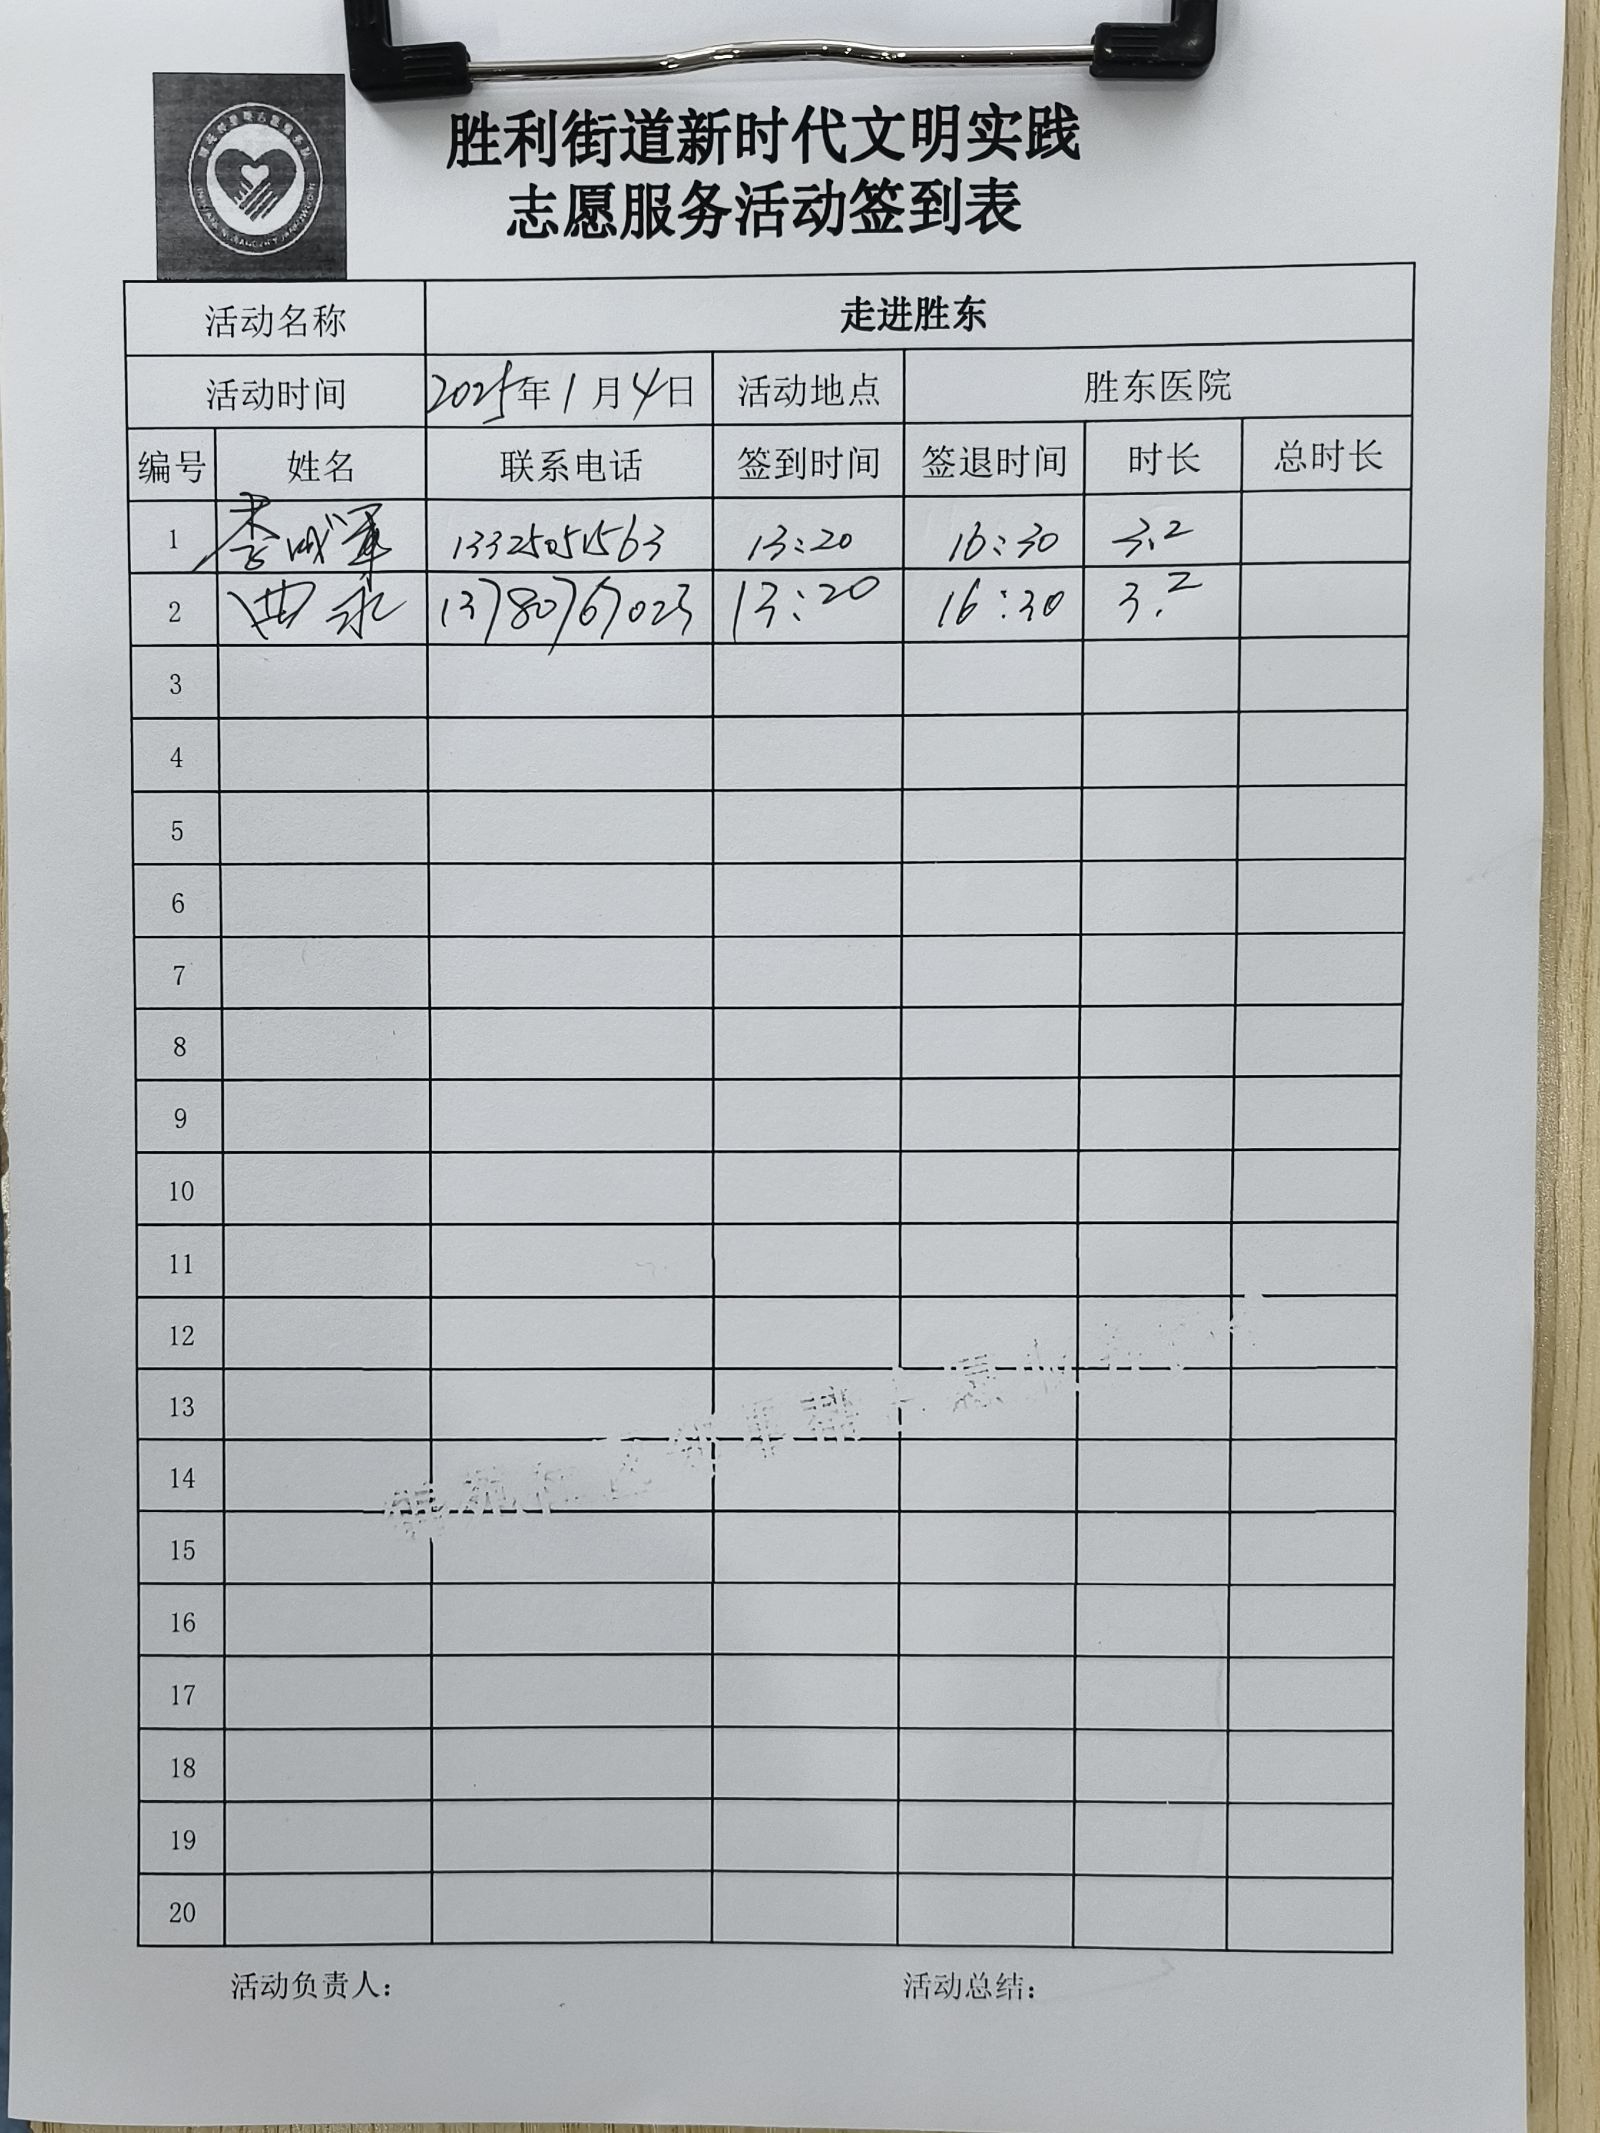 胜利街道新时代文明实践
志愿服务活动签到表
活动名称 走进胜东
活动时间 2025年1月4日 活动地点 胜东医院
编号 姓名 联系电话 签到时间 签退时间 时长 总时长
1 李成军 13325051563 13:20 16:30 3.2
2 曲永 13780767023 13:20 16:30 3.2
3
4
5
6
7
8
9
10
11
12
13
14
15
16
17
18
19
20
活动负责人: 活动总结: